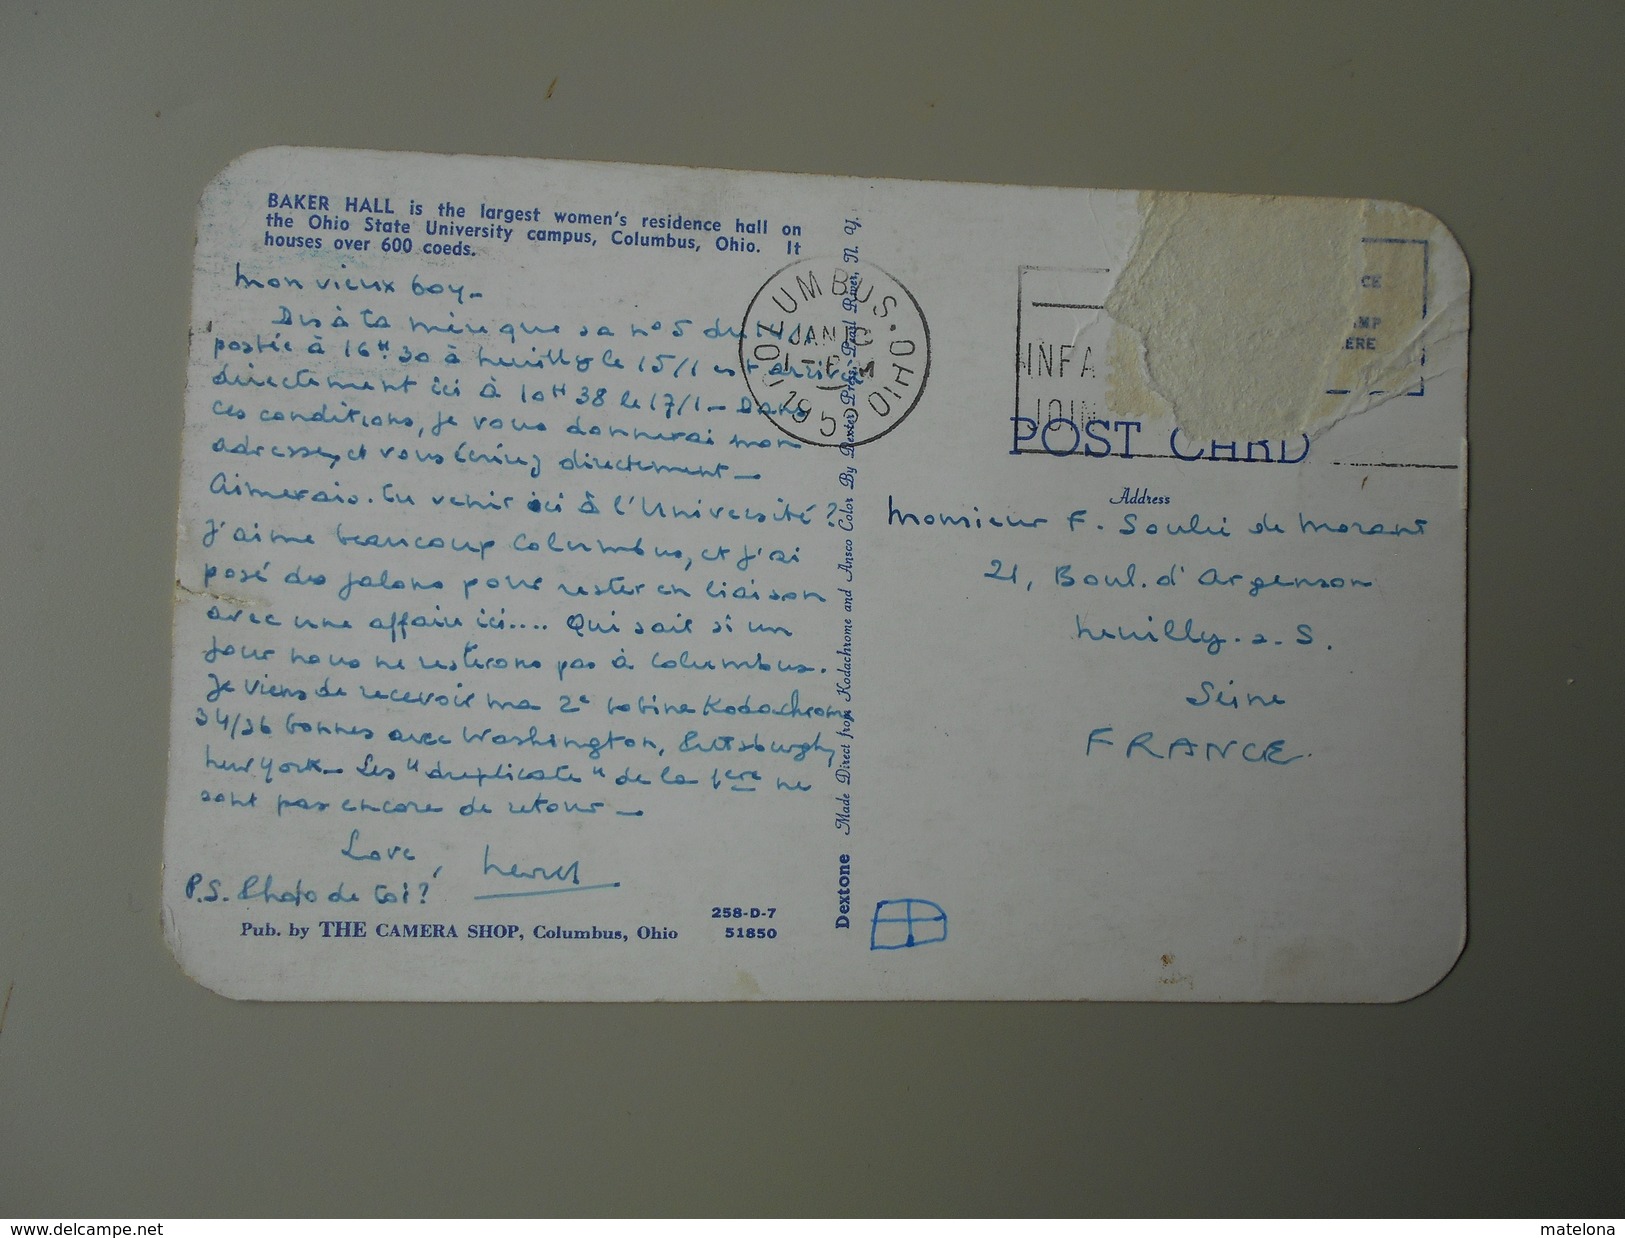 BAKER HALL is the largest women's residence hall on
the Ohio State University campus, Columbus, Ohio. It
houses over 600 coeds.
Mon vieux boy -
Dis à ta mère que sa n° 5 du
postée à 16H30 à Neuilly le 15/1 est arrivée
directement ici à 10H38 le 17/1 - Dans
ces conditions, je vous donnerai mon
adresse, et vous écrirez directement -
Aimerais-tu venir ici à l'Université ?
J'aime beaucoup Columbus, et j'ai
posé des jalons pour rester en liaison
avec une affaire ici.... Qui sait si un
jour nous ne resterons pas à Columbus.
Je viens de recevoir ma 2e bobine Kodachrome
34/36 bonnes avec Washington, Pittsburgh,
New York - Les "duplicate" de la 1ère ne
sont pas encore de retour -
Love,
P.S. Photo de toi ?
Pub. by THE CAMERA SHOP, Columbus, Ohio
258-D-7
51850
Dextone Made Direct from Kodachrome and Ansco Color By Dexter Press, Pearl River, N. Y.
COLUMBUS. OHIO
JAN
1 - PM
195
INFA
JOIN
CE
MP
ERE
POST CARD
Address
Monsieur F. Soulié de Morant
21, Boul. d'Argenson
Neuilly-s-S.
Seine
FRANCE.
www.delcampe.net
matelona